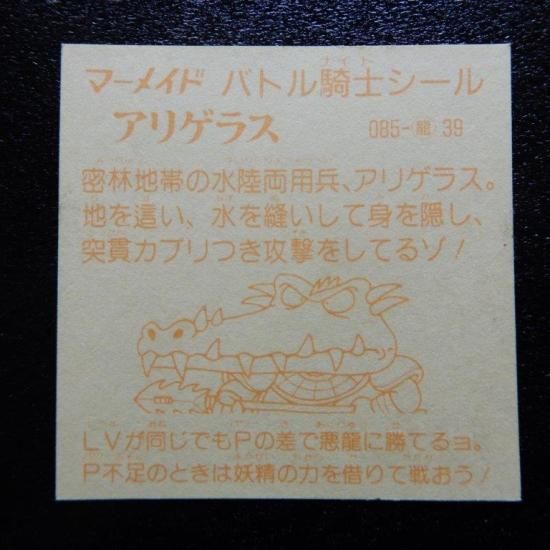 マーメイド バトル騎士シール
アリゲラス 085-(龍)39
密林地帯の水陸両用兵、アリゲラス。
地を這い、水を縫いして身を隠し、
突貫カブリつき攻撃をしてるゾ!
LVが同じでもPの差で悪龍に勝てるヨ。
P不足のときは妖精の力を借りて戦おう!